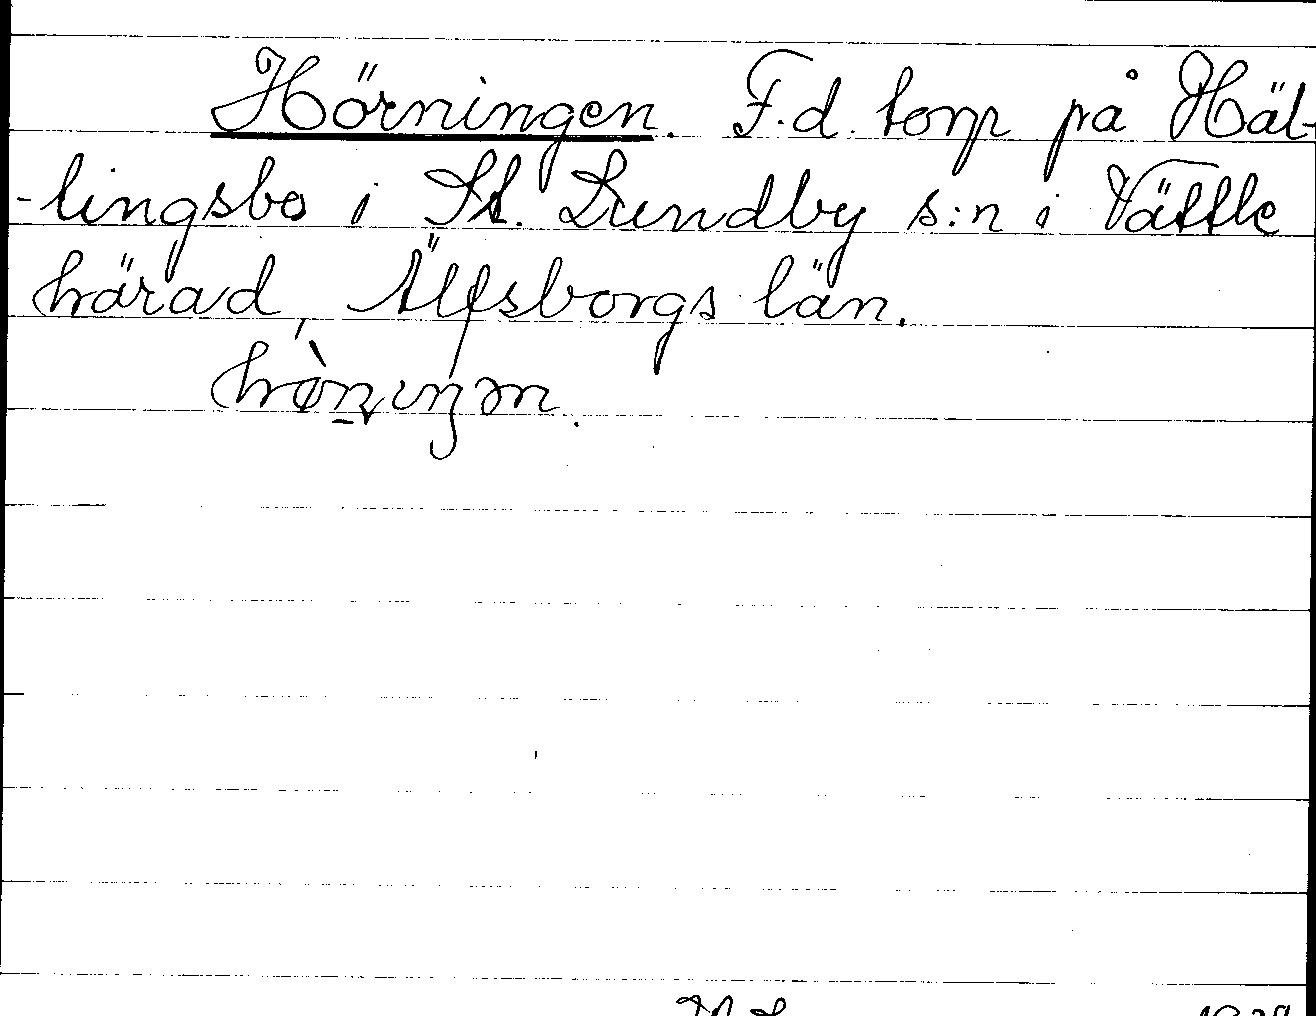 Hörningen. F.d. torp på Häl-
-lingsbo i St. Lundby s:n i Vättle
härad, Älfsborgs län.